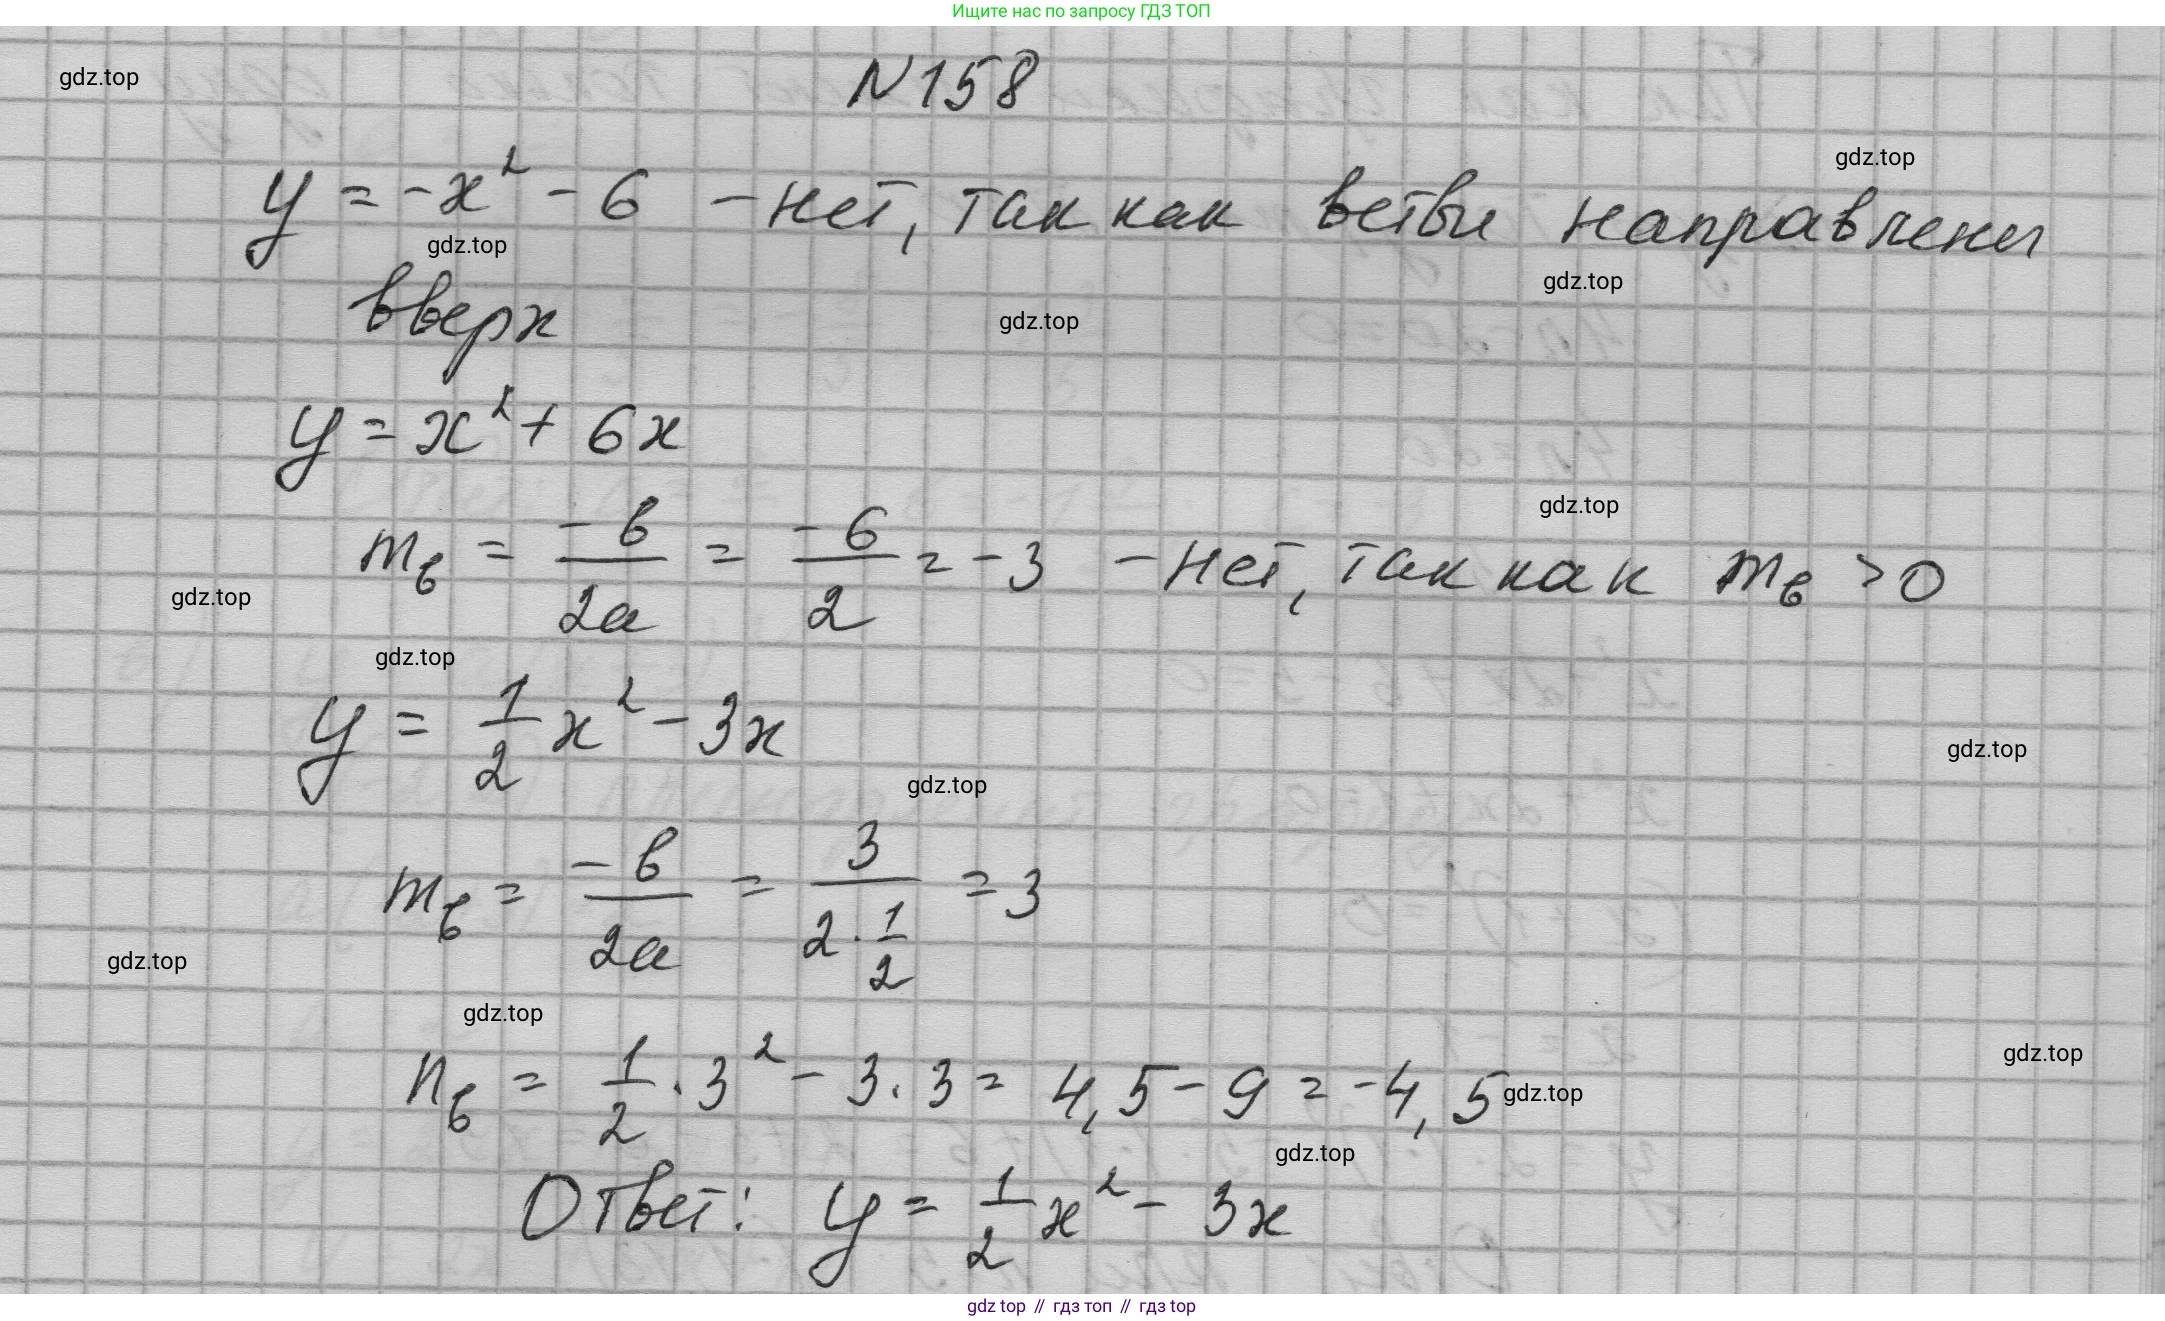 Ищите нас по запросу ГДЗ ТОП
N158
gdz.top
gdz.top
y = -x² - 6 - нет, так как ветви направлены
gdz.top
gdz.top
вверх
gdz.top
y = x² + 6x
gdz.top
m_в = -в/2a = -6/2 = -3 - нет, так как m_в > 0
gdz.top
gdz.top
y = 1/2 x² - 3x
gdz.top
gdz.top
m_в = -в/2a = 3/(2·1/2) = 3
gdz.top
gdz.top
gdz.top
n_в = 1/2 · 3² - 3 · 3 = 4,5 - 9 = -4,5
gdz.top
gdz.top
Ответ: y = 1/2 x² - 3x
gdz top // гдз топ // гдз top